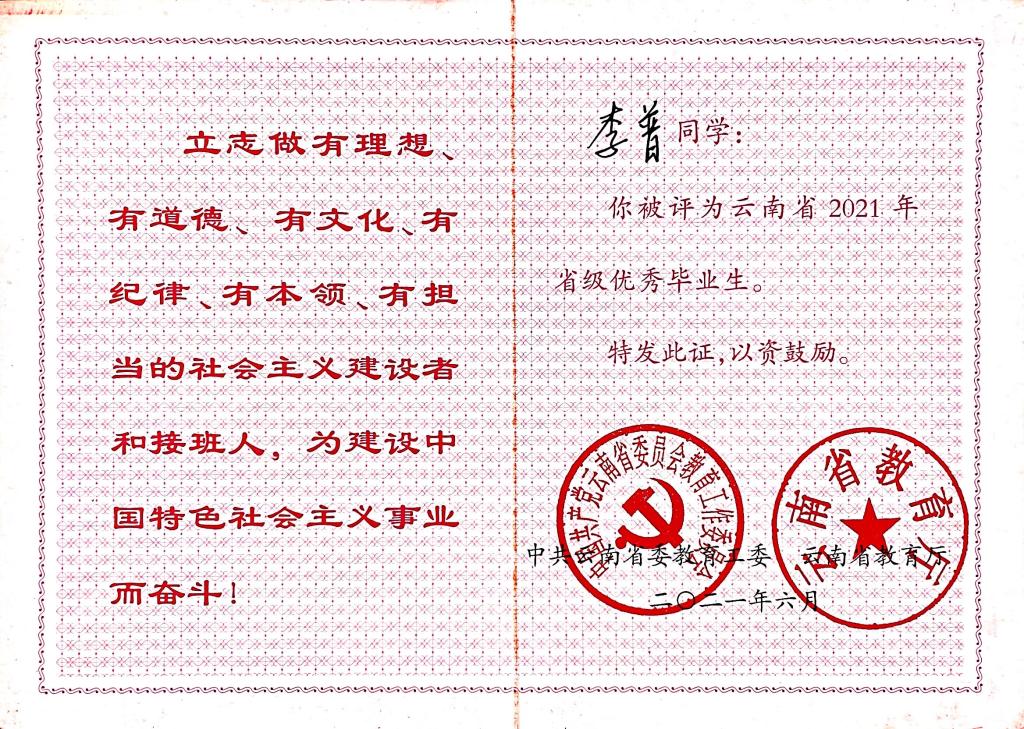 立志做有理想、
有道德、有文化、有
纪律、有本领、有担
当的社会主义建设者
和接班人，为建设中
国特色社会主义事业
而奋斗！
李普同学：
你被评为云南省2021年
省级优秀毕业生。
特发此证，以资鼓励。
中国共产党云南省委员会教育工作委员会
云南省教育厅
中共云南省委教育工委 云南省教育厅
二〇二一年六月